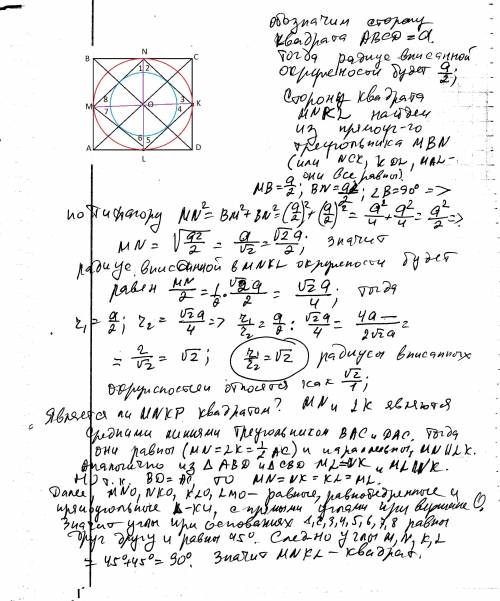 B N C
1 2
8 3
M O K
7 4
6 5
A L D
обозначим сторону
квадрата ABCD = a.
Тогда радиус вписанной
окружности будет a/2;
Сторону квадрата
MNKL найдем
из прямоуг-го
треугольника MBN
(или NCK, KDL, MAL-
они все равны).
MB = a/2; BN = a/2; ∠B=90° =>
по Пифагору MN² = BM²+BN² = (a/2)²+(a/2)² = a²/4 + a²/4 = a²/2 =>
MN = √(a²/2) = a/√2 = √2a/2; значит
радиус вписанной в MNKL окружности будет
равен MN/2 = 1/2 · √2a/2 = √2a/4; тогда
r₁ = a/2; r₂ = √2a/4 => r₁/r₂ = a/2 : √2a/4 = 4a/2√2a =
= 2/√2 = √2; r₁/r₂ = √2 радиусы вписанных
окружностей относятся как √2/1;
Является ли MNKP квадратом? MN и LK являются
средними линиями треугольников BAC и DAC. Тогда
они равны (MN=LK=1/2 AC) и параллельны, MN||LK.
Аналогично из △ABD и △CBD ML=NK и ML||NK.
Но т.к. BD=AC, то MN=NK=KL=ML.
Далее, MNO, NKO, KLO, LMO- равные, равнобедренные и
прямоугольные △-ки, с прямыми углами при вершине O,
Значит углы при основаниях 1,2,3,4,5,6,7,8 равны
друг другу и равны 45°. Следно углы M, N, K, L
= 45°+45° = 90°. Значит MNKL - квадрат.